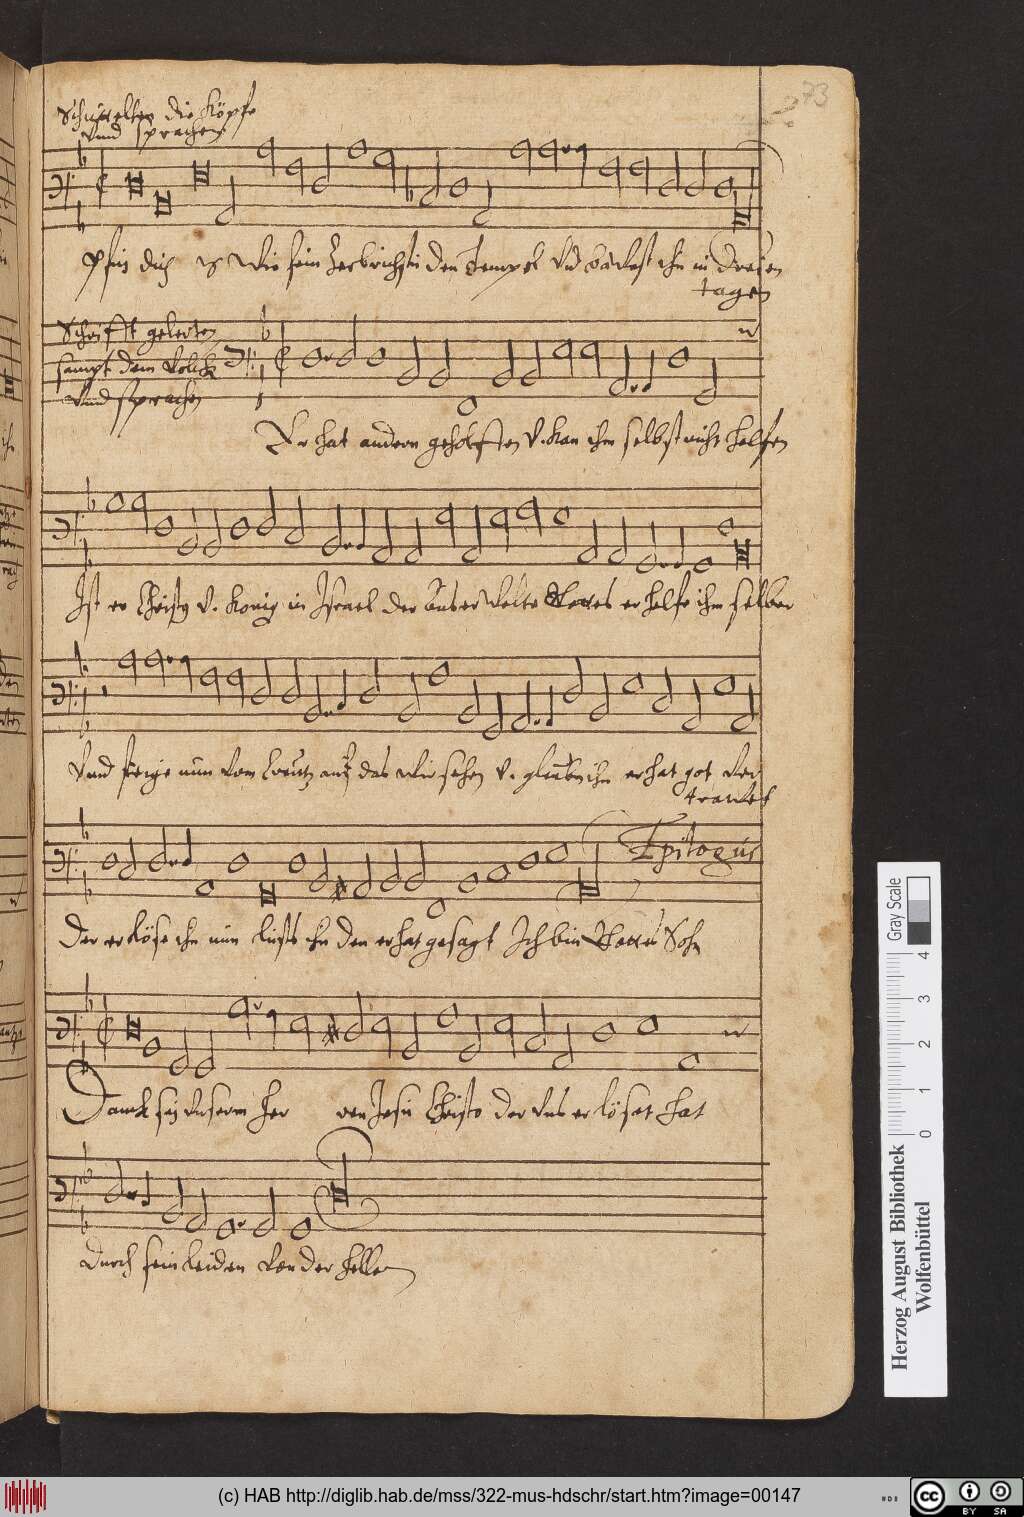 73
Schüttelten die Köpfe
vnnd sprachen
Pfui dich wie fein zerbrichstu den Tempel vnd bawest ihn in dreien
tagen
Schrifft gelerten
sampt dem Volck
vnnd sprachen
Er hat andern geholffen v. kan ihm selbst nicht helfen
Ist er Christus v. konig in Israel der auserwelte Gottes er helfe ihm selber
Vnnd steige nun vom Creutz auf das wir sehen v. glauben ihm er hat got ver
trawet
Der erlöse ihn nun lüsts ihn den er hat gesagt Ich bin Gottes Sohn
Epilogus
Danck sei vnserm Her ren Jesu Christo der vns erlöset hat
durch sein leiden von der helle
Gray Scale
0 1 2 3 4
Herzog August Bibliothek
Wolfenbüttel
(c) HAB http://diglib.hab.de/mss/322-mus-hdschr/start.htm?image=00147
cc BY SA